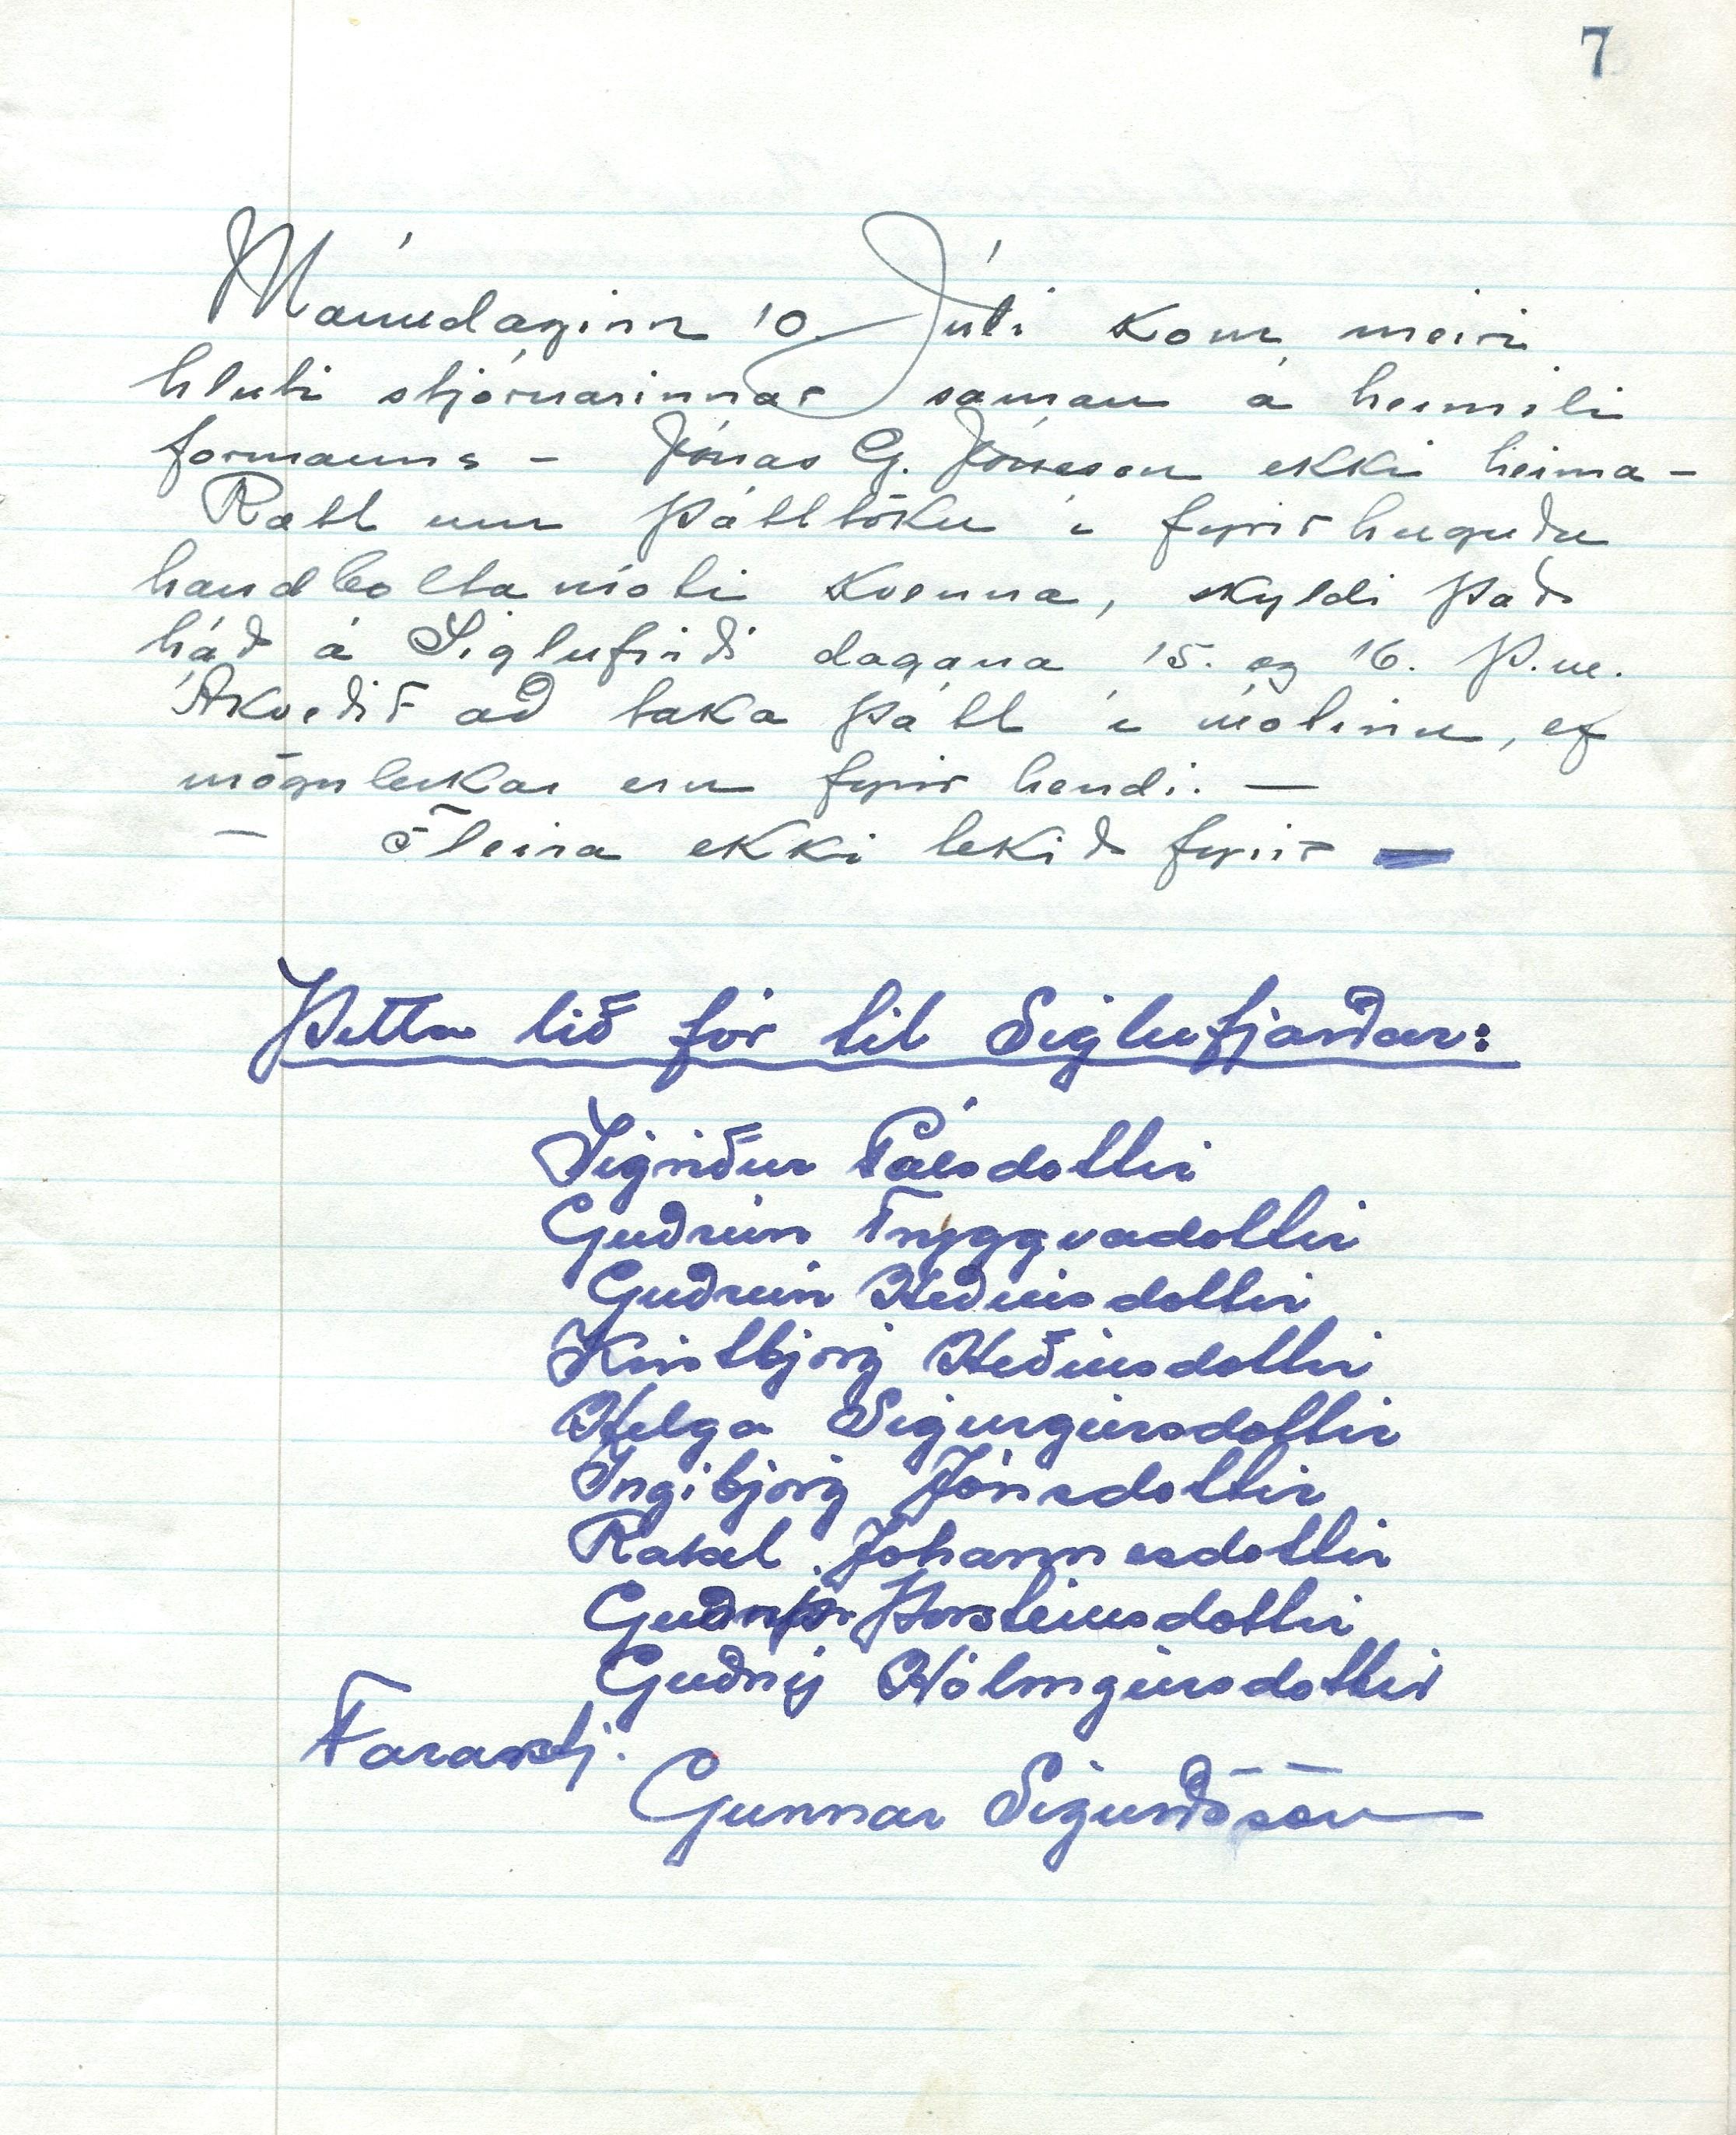 7
Mánudaginn 10. Júlí kom meiri
hluti stjórnarinnar saman á heimili
formanns - Jónas G. Jónsson ekki heima -
Rætt um þátttöku í fyrirhuguðu
handboltamóti kvenna, skyldi það
háð á Siglufirði dagana 15. og 16. þ.m.
Ákveðið að taka þátt í mótinu, ef
möguleikar eru fyrir hendi. —
— Fleira ekki tekið fyrir —
Þetta lið fór til Siglufjarðar:
Sigríður Pálsdóttir
Guðrún Tryggvadóttir
Guðrún Héðinsdóttir
Kristbjörg Héðinsdóttir
Helga Sigurgeirsdóttir
Ingibjörg Jónsdóttir
Rakel Jóhannesdóttir
Þorsteinsdóttir
Guðný Hólmgeirsdóttir
Fararstj.
Gunnar Sigurðsson